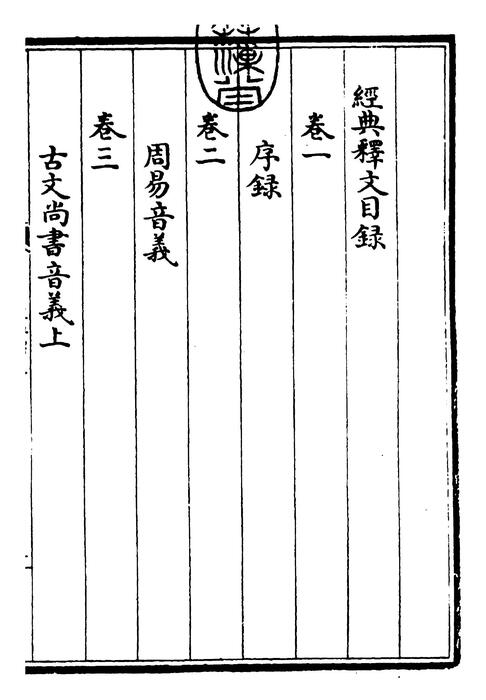 經典釋文目録
卷一
序録
卷二
周易音義
卷三
古文尚書音義上